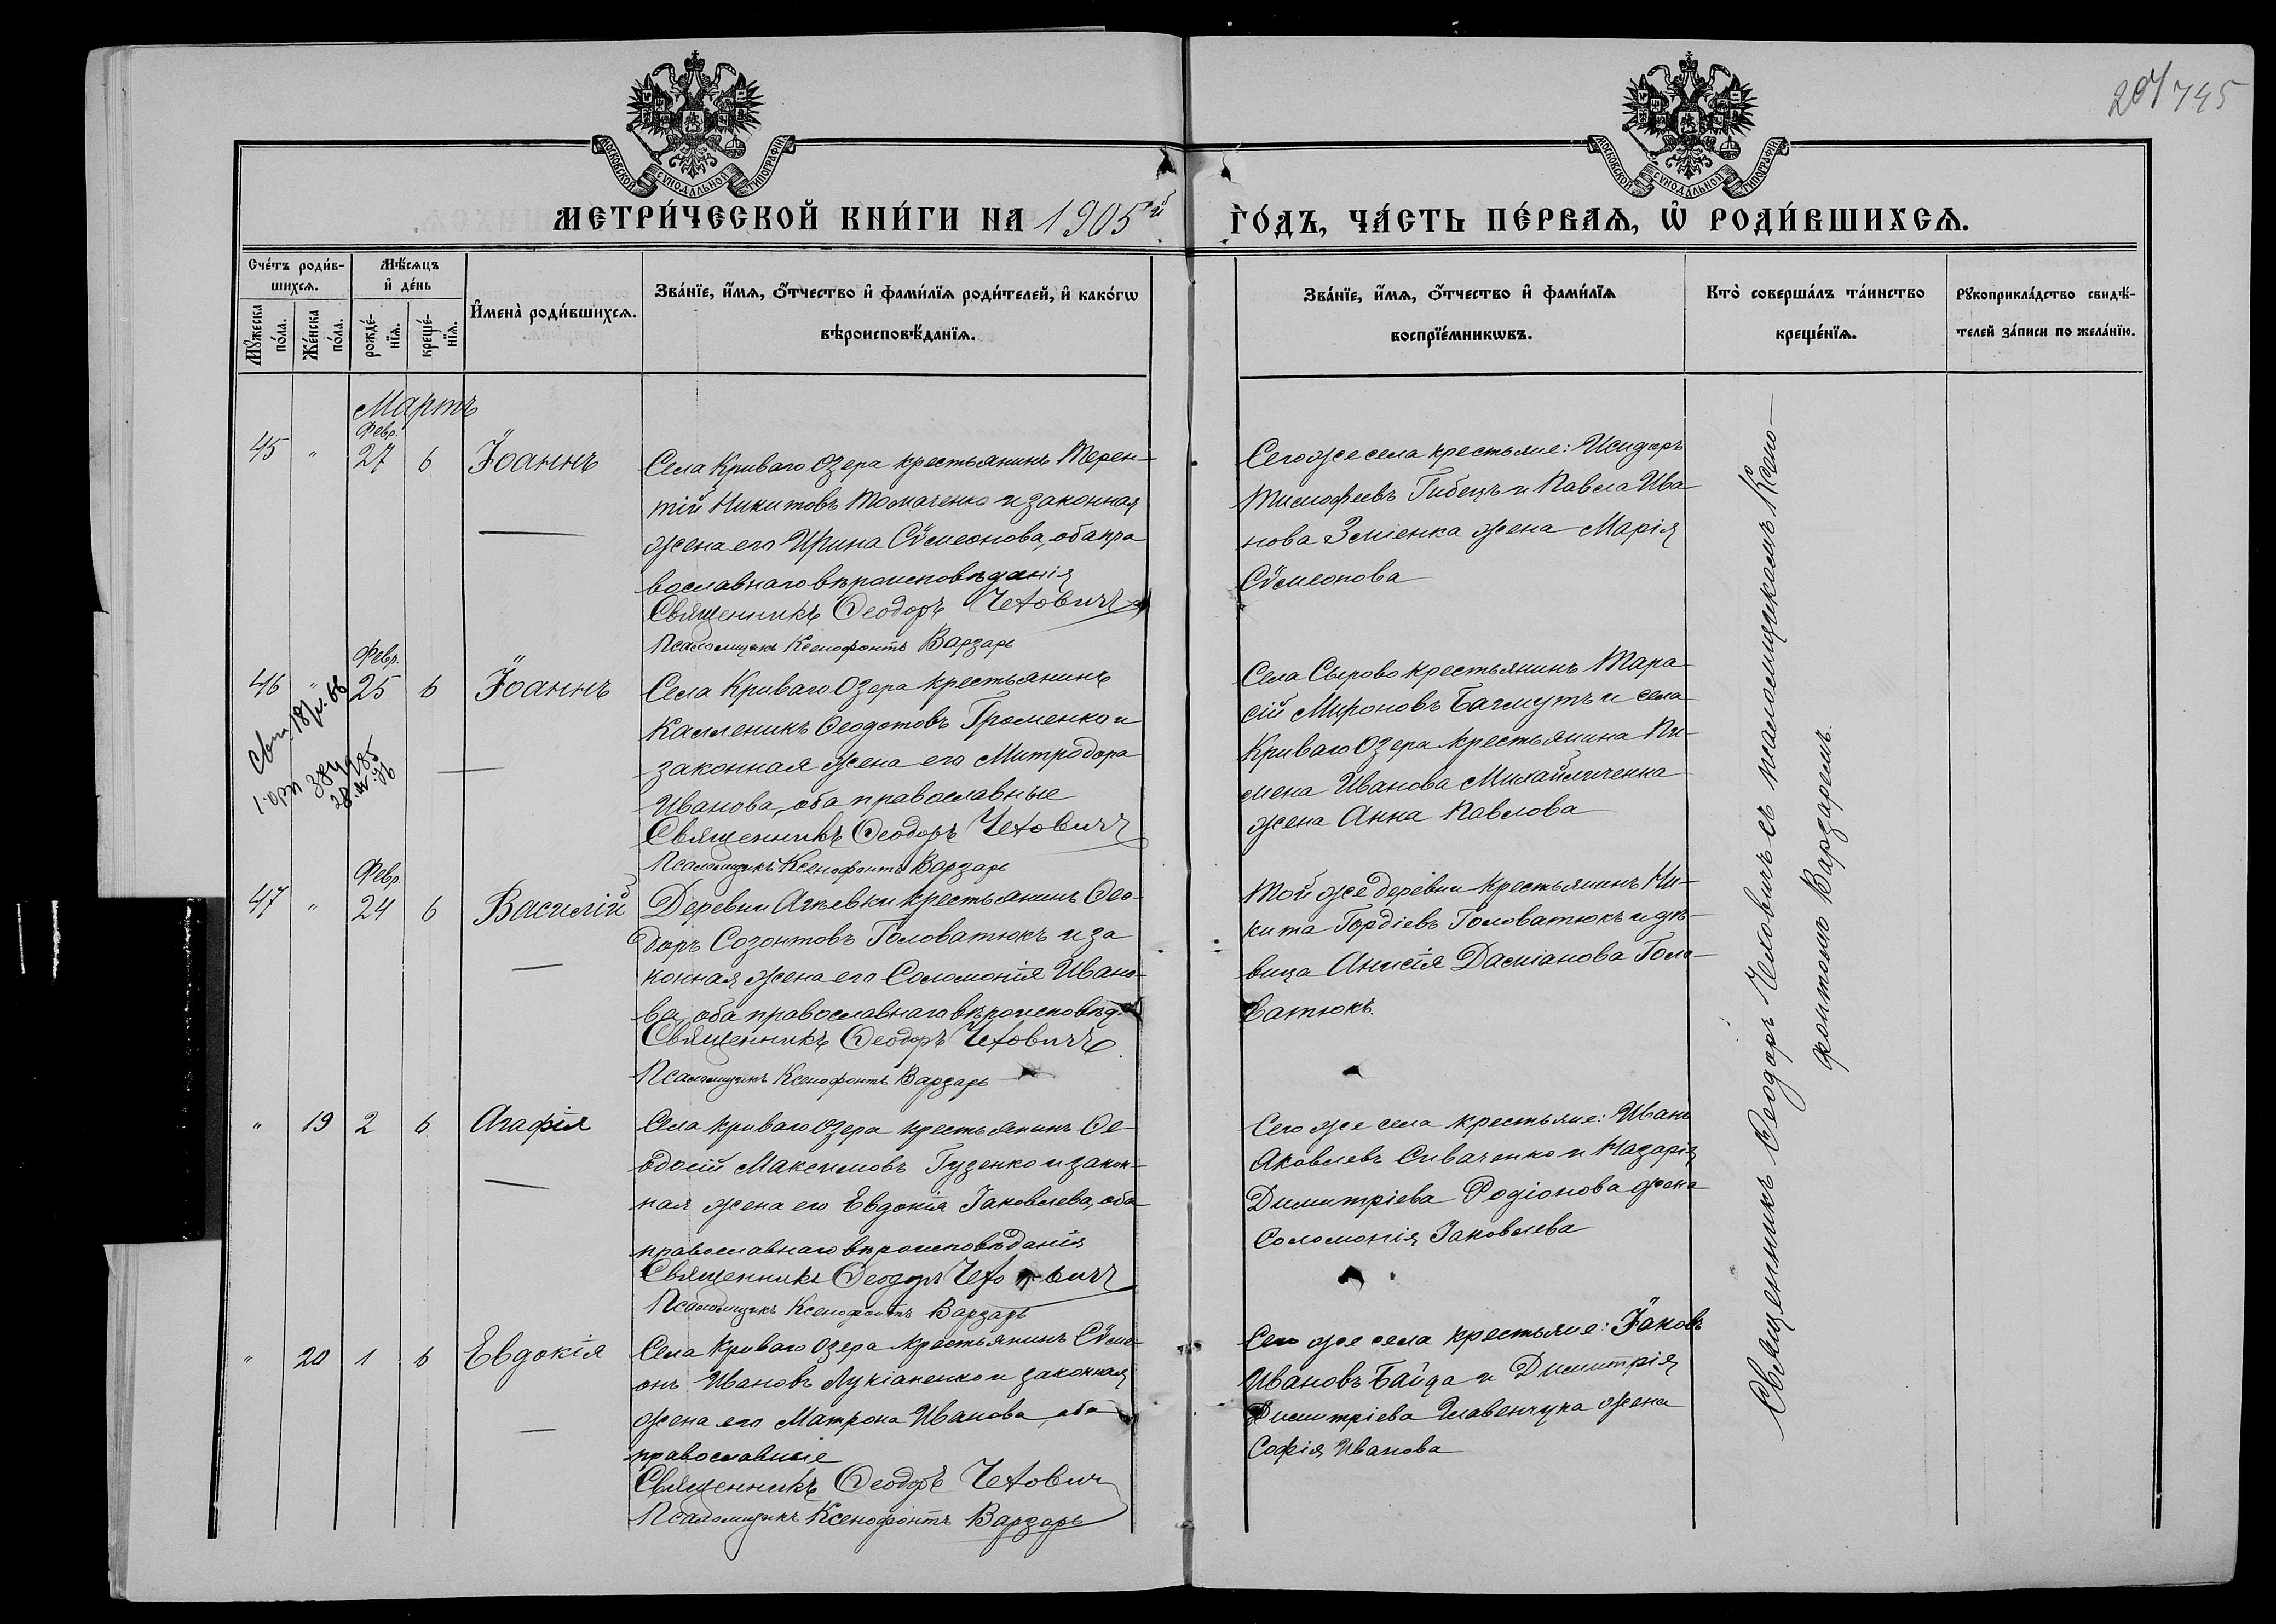 207/745
МОСКОВСКОЙ СѴНОДАЛЬНОЙ ТИПОГРАФІИ
МОСКОВСКОЙ СѴНОДАЛЬНОЙ ТИПОГРАФІИ
МЕТРИ́ЧЕСКОЙ КНИ́ГИ НА 1905й ГО́ДЪ, ЧА́СТЬ ПЕ́РВАѦ, Ѡ҆ РОДИ́ВШИХСѦ.
Сче́тъ роди́в-
шихсѧ.
Мꙋ́жеска
по́ла.
Же́нска
по́ла.
Мѣ́сѧцъ
и҆ де́нь
рожде́-
нїѧ.
креще́-
нїѧ.
И҆мена̀ роди́вшихсѧ.
Зва́нїе, и҆́мѧ, ѻ҆́тчество и҆ фами́лїѧ роди́телей, и҆ како́гѡ
вѣроисповѣ́данїѧ.
Зва́нїе, и҆́мѧ, ѻ҆́тчество и҆ фами́лїѧ
воспрїе́мникѡвъ.
Кто̀ соверша́лъ та́инство
креще́нїѧ.
Рꙋкоприкла́дство свидѣ́-
телей за́писи по жела́нїю.
Мартъ
Февр.
45 " 27 6 Іоаннъ
Села Криваго Озера крестьянинъ Терен-
тій Никитовъ Томаченко и законная
жена его Ирина Сѵмеонова, оба пра
вославнаго вѣроисповѣданія
Священникъ Ѳеодоръ Чеховичъ
Псаломщикъ Ксенофонтъ Варзарь
Сего же села крестьяне: Исидоръ
Тимофеевъ Гибецъ и Павла Ива
нова Зміенка жена Марія
Сѵмеонова
Февр.
46 " 25 6 Іоаннъ
Села Криваго Озера крестьянинъ
Каллиникъ Ѳеодотовъ Громенко и
законная жена его Митродора
Иванова, оба православные
Священникъ Ѳеодоръ Чеховичъ
Псаломщикъ Ксенофонтъ Варзарь
Села Сырово крестьянинъ Тара
сій Мироновъ Багмутъ и села
Криваго Озера крестьянина Пи-
мена Иванова Михайличенка
жена Анна Павлова
Февр.
47 " 24 6 Василій
Деревни Агѣевки крестьянинъ Ѳео-
доръ Созонтовъ Головатюкъ и за
конная жена его Соломонія Ивано-
ва, оба православнаго вѣроисповѣд.
Священникъ Ѳеодоръ Чеховичъ
Псаломщикъ Ксенофонтъ Варзарь
Той же деревни крестьянинъ Ни-
кита Гордіевъ Головатюкъ и дѣ-
вица Анисія Даміанова Голо-
ватюкъ.
" 19 2 6 Агафія
Села Криваго Озера крестьянинъ Ѳе-
одосій Максимовъ Гузенко и закон-
ная жена его Евдокія Іаковлева, оба
православнаго вѣроисповѣданія
Священникъ Ѳеодоръ Чеховичъ
Псаломщикъ Ксенофонтъ Варзарь
Сего же села крестьяне: Иванъ
Яковлевъ Сиваченко и Назарія
Димитріева Родіонова жена
Соломонія Іаковлева
" 20 1 6 Евдокія
Села Криваго Озера крестьянинъ Сѵме-
онъ Ивановъ Лукіаненко и законная
жена его Матрона Иванова, оба
православные
Священникъ Ѳеодоръ Чеховичъ
Псаломщикъ Ксенофонтъ Варзарь
Сего же села крестьяне: Іаковъ
Ивановъ Байда и Димитрія
Димитріева Главенчука жена
Софія Иванова
Священникъ Ѳеодоръ Чеховичъ съ псаломщикомъ Ксено-
фонтомъ Варзаремъ.